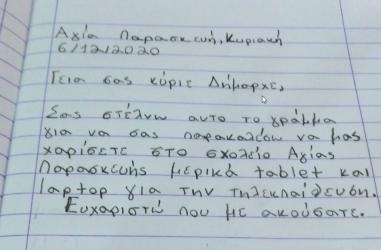 Αγία Παρασκευή, Κυριακή
6/12/2020
Γεια σας κύριε Δήμαρχε,
Σας στέλνω αυτο το γράμμα
για να σας παρακαλέσω να μας
χαρίσετε στο σχολείο Αγίας
Παρασκευής μερικά tablet και
laptop για την τηλεκπαίδευση.
Ευχαριστώ που με ακούσατε.